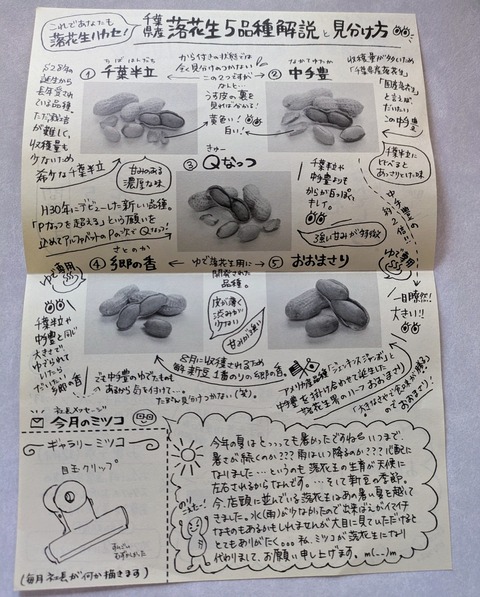 これであなたも
落花生ハカセ!
千葉県産 落花生5品種解説と見分け方
S28年の
誕生から
長年愛されて
いる品種。
ただ栽培
が難しく、
収穫量も
少ないため
希少な千葉半立
ちばはんだち
① 千葉半立
から付きの状態では
全く見分けがつかない
この2つですが
なんと…
うす皮の裏を
見ればわかる!
黄色い!
白い!
なかてゆたか
② 中手豊
収穫量が多いため
「千葉県産落花生」
「国産落花生」
と言えば
だいたい
この中手豊
千葉半立に
比べると
あっさりとした味
甘みのある
濃厚な味
きゅー
③ Qなっつ
H30年にデビューした新しい品種。
「Pなっつを超える」という願いを
込めてアルファベットのPの次でQなっつ!
千葉半立や
中手豊よりも
からが白っぽく
キレイ。
強い甘みが特徴
中手豊の
約2倍!!
さとのか
④ 郷の香
ゆで落花生用に
開発された
品種。
⑤ おおまさり
ゆで専用
ゆで専用
千葉半立や
中手豊と同じ
大きさで、
ゆでられて
いたら
だいたい
郷の香
皮が薄く
渋みが
少ない
甘みが強い
一目瞭然!
大きい!!
8月に収穫されるため
新豆1番のりの郷の香。
でも中手豊のゆでたものも
あるから気を付けて…
たぶん見分けつかない(笑)。
アメリカ産品種「ジェンキンスジャンボ」と
中手豊を掛け合わせて誕生した
落花生界のハーフおおまさり
「大きなサヤで食味が勝る」
のでおおまさり!
社長メッセージ
今月のミツコ
ギャラリーミツコ
目玉クリップ
すんごい
むずかしかった
(毎月社長が何か描きます)
今年の夏はとっっっても暑かったですね。いつまで
暑さが続くのか???雨はいつ降るのか???心配に
なりました…というのも落花生の生育が天候に
左右されるからなんです。…そして新豆の季節。
今、店頭に並んでいる落花生はあの暑い夏を越して
きました。水(雨)が少なかったので出来ばえがイマイチ
なものもあるかもしれませんが大目に見ていただけると
とてもありがたく。。。私、ミツコが落花生になり
代わりまして、お願い申し上げます。m(--)m